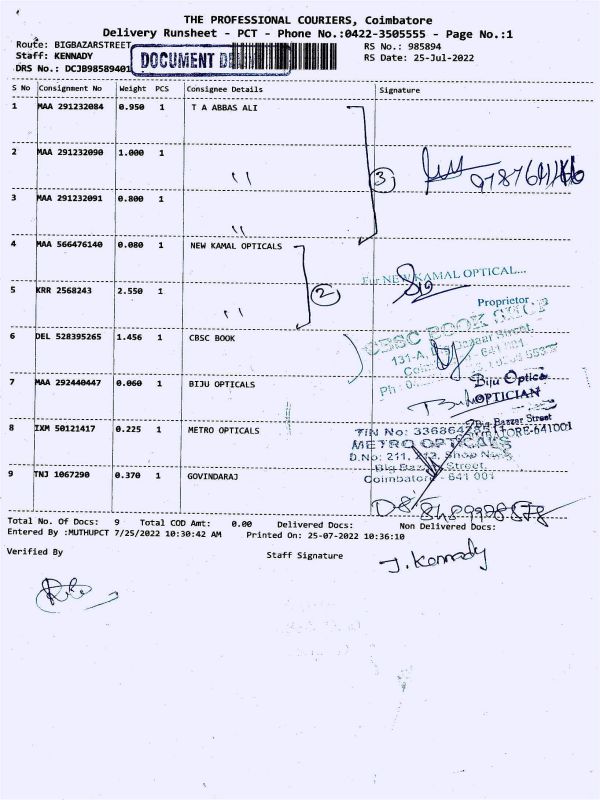 THE PROFESSIONAL COURIERS, Coimbatore
Delivery Runsheet - PCT - Phone No.:0422-3505555 - Page No.:1
Route: BIGBAZARSTREET RS No.: 985894
Staff: KENNADY RS Date: 25-Jul-2022
DRS No.: DCJB98589401 DOCUMENT
S No Consignment No Weight PCS Consignee Details Signature
1 MAA 291232084 0.950 1 T A ABBAS ALI
2 MAA 291232090 1.000 1 "
3
3 MAA 291232091 0.800 1 "
4 MAA 566476140 0.080 1 NEW KAMAL OPTICALS
For NEW KAMAL OPTICAL...
5 KRR 2568243 2.550 1 "
2
Proprietor
6 DEL 528395265 1.456 1 CBSC BOOK
CBSC BOOK
131-A, Street,
641 001
7 MAA 292440447 0.060 1 BIJU OPTICALS
Biju Optics
OPTICIAN
Big Bazaar Street
8 IXM 50121417 0.225 1 METRO OPTICALS
TIN No:
METRO OPTICALS
D.No: 211, 212, Shop
Big Bazaar Street,
Coimbatore - 641 001
9 TNJ 1067290 0.370 1 GOVINDARAJ
Total No. Of Docs: 9 Total COD Amt: 0.00 Delivered Docs: Non Delivered Docs:
Entered By :MUTHUPCT 7/25/2022 10:30:42 AM Printed On: 25-07-2022 10:36:10
Verified By Staff Signature
J. Kennady